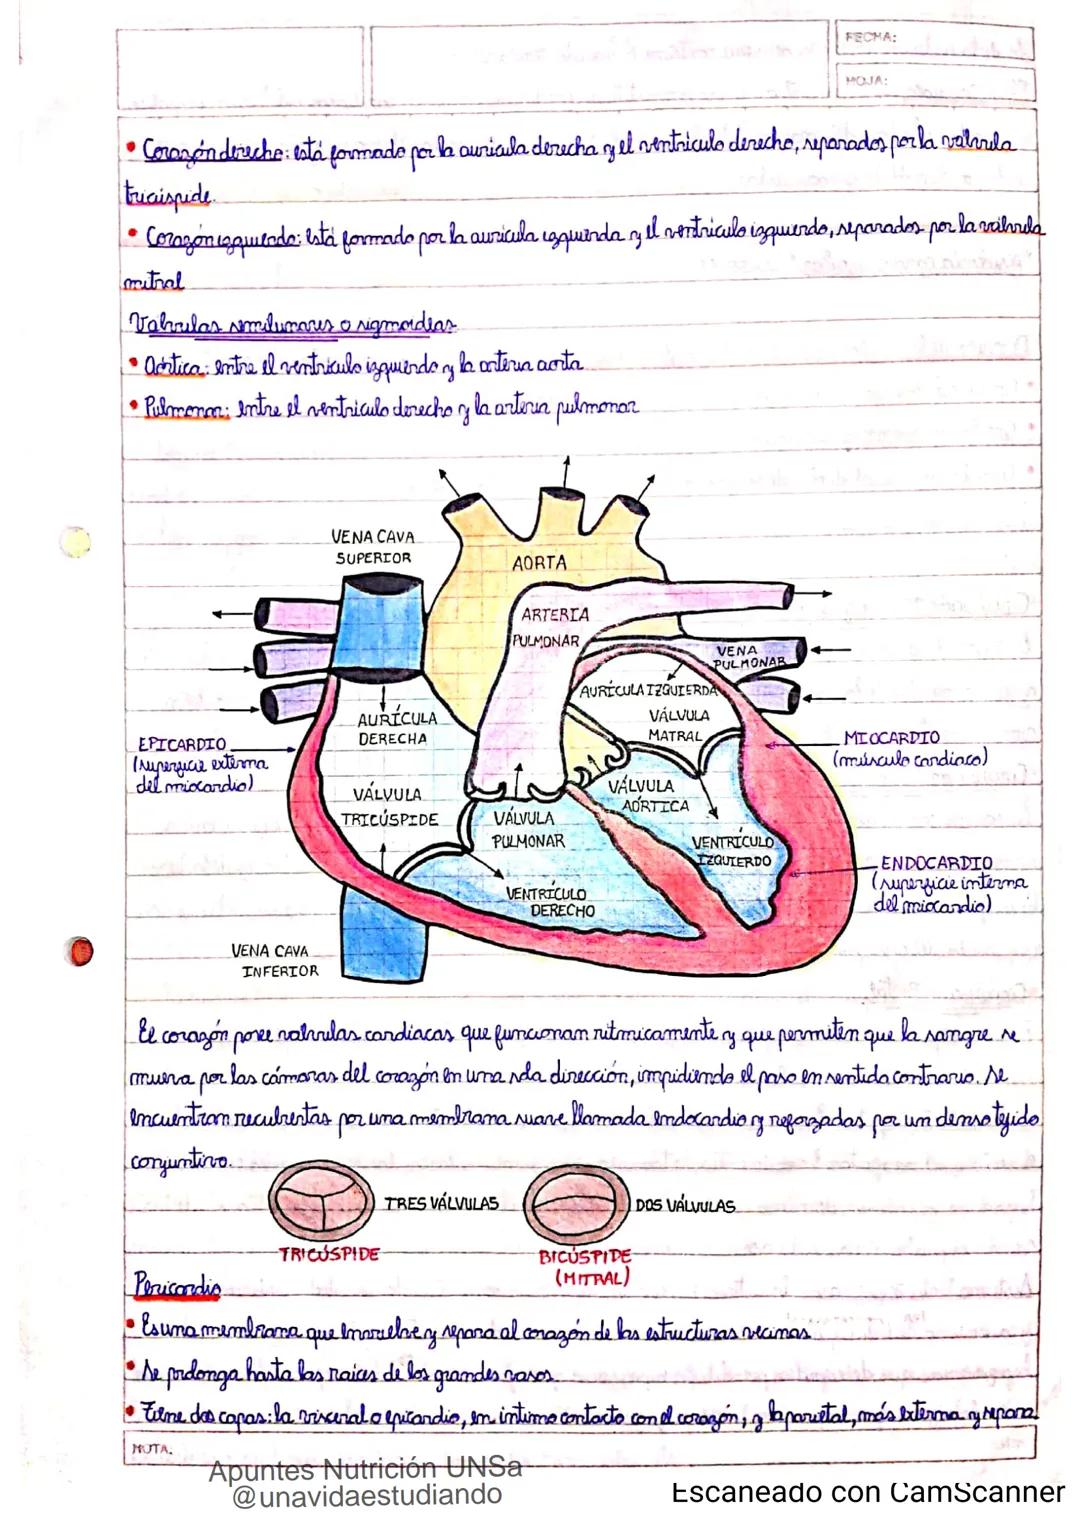 FECHA:
HOJA:
• Corazón derecho: está formado por la aurícula derecha y el ventrículo derecho, separados por la válvula
tricúspide.
• Corazón izquierdo: está formado por la aurícula izquierda y el ventrículo izquierdo, separados por la válvula
mitral
Válvulas semilunares o sigmoideas
• Aórtica: entre el ventrículo izquierdo y la arteria aorta
• Pulmonar: entre el ventrículo derecho y la arteria pulmonar
VENA CAVA
SUPERIOR
AORTA
ARTERIA
PULMONAR
VENA
PULMONAR
AURÍCULA IZQUIERDA
AURÍCULA
DERECHA
VÁLVULA
MATRAL
EPICARDIO
(superficie externa
del miocardio)
MIOCARDIO
(músculo cardiaco)
VÁLVULA
TRICÚSPIDE
VÁLVULA
AÓRTICA
VÁLVULA
PULMONAR
VENTRÍCULO
IZQUIERDO
ENDOCARDIO
(superficie interna
del miocardio)
VENTRÍCULO
DERECHO
VENA CAVA
INFERIOR
El corazón posee valvulas cardiacas que funcionan ritmicamente y que permiten que la sangre se
mueva por las cámaras del corazón en una sola dirección, impidiendo el paso en sentido contrario. Se
encuentran recubiertas por una membrana suave llamada endocardio y reforzadas por un denso tejido
conjuntivo.
TRES VÁLVULAS
DOS VÁLVULAS
TRICÚSPIDE
BICÚSPIDE
(MITRAL)
Pericardio
• Es una membrana que envuelve y separa al corazón de las estructuras vecinas
• Se prolonga hasta las raíces de los grandes vasos
• Tiene dos capas: la visceral o epicardio, en íntimo contacto con el corazón; y la parietal, más externa y separa
NOTA:
Apuntes Nutrición UNSa
@unavidaestudiando
Escaneado con CamScanner